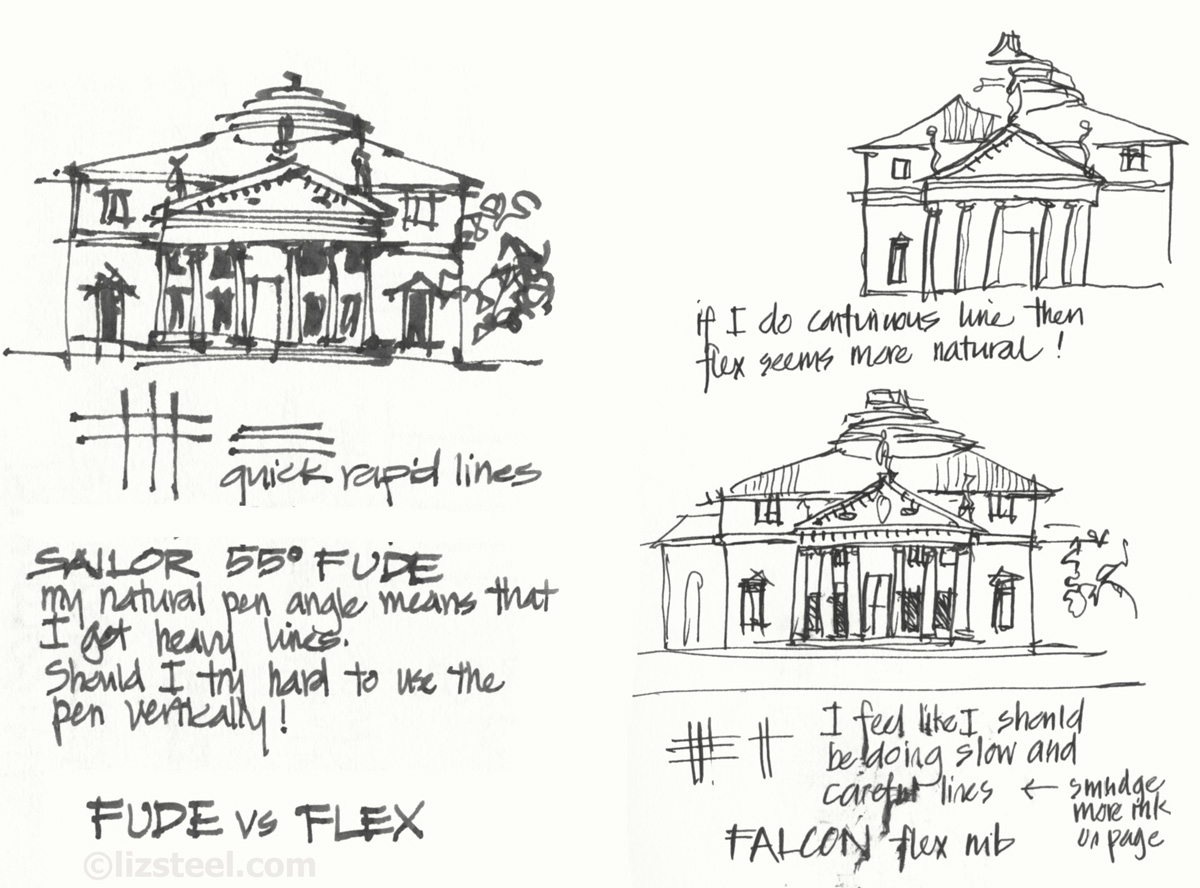 quick rapid lines
SAILOR 55° FUDE
my natural pen angle means that
I get heavy lines.
Should I try hard to use the
pen vertically!
FUDE vs FLEX
©lizsteel.com
if I do continuous line then
flex seems more natural!
I feel like I should
be doing slow and
careful lines ← smudge
more ink
on page
FALCON flex nib